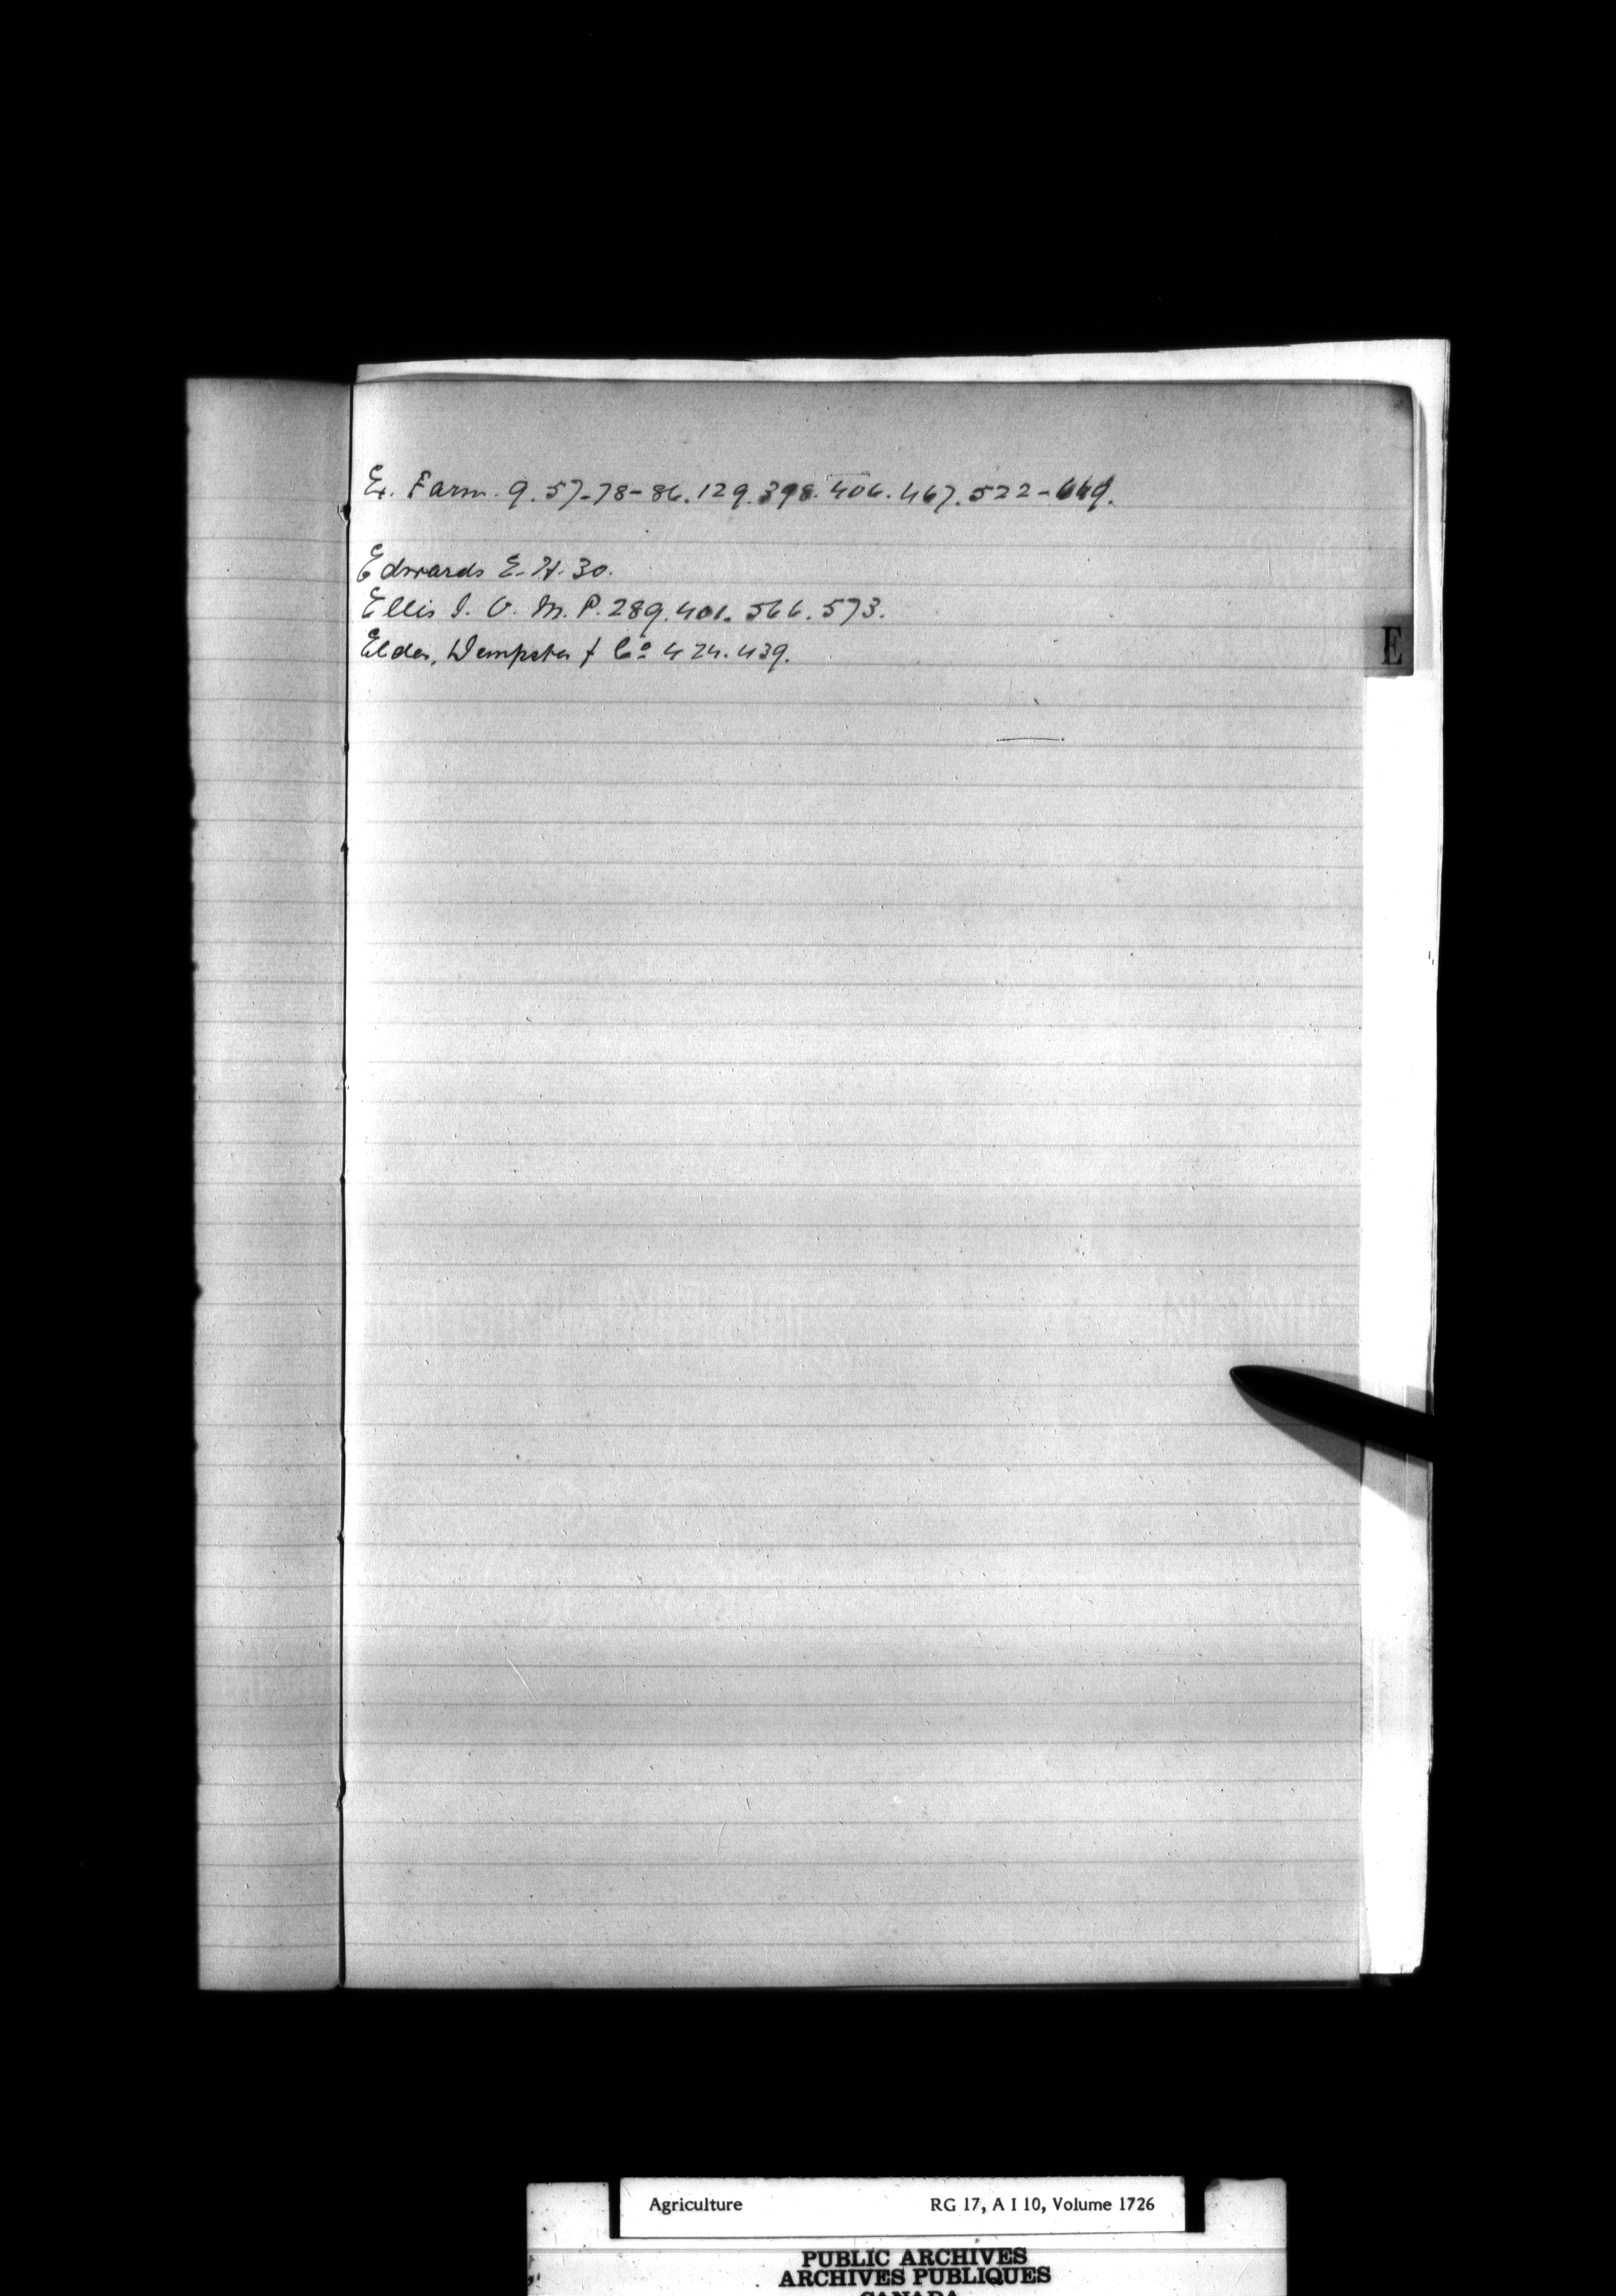 Ex. Farm. 9. 57-78-86. 129. 398. 406. 467. 522-669.
Edwards E. H. 30.
Ellis J. V. M. P. 289. 401. 566. 573.
Elder, Dempster & Co 424. 439.
E
Agriculture RG 17, A I 10, Volume 1726
PUBLIC ARCHIVES
ARCHIVES PUBLIQUES
CANADA